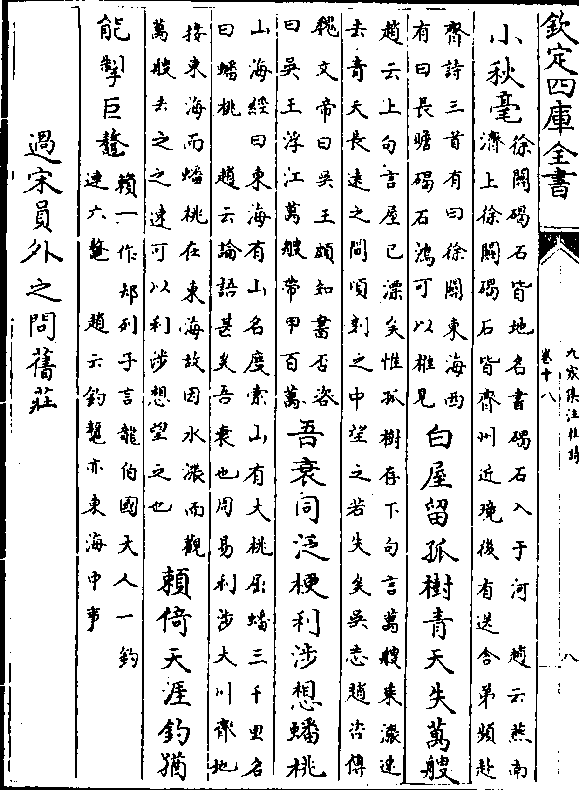 欽定四庫全書
九家集注杜詩
卷十八
八
小秋毫
徐關碣石皆地名書碣石入于河 趙云燕南
濟上徐關碣石皆齊州近境後有送舍弟頻赴
齊詩三首有曰徐關東海西
有曰長瞻碣石鴻可以推見
白屋留孤樹青天失萬艘
趙云上句言屋已漂矣惟孤樹存下句言萬艘乘漲速
去青天長遠之間頃刻之中望之若失矣吳志趙咨傳
魏文帝曰吳王頗知書否咨
曰吳王浮江萬艘帶甲百萬
吾衰同泛梗利涉想蟠桃
山海經曰東海有山名度索山有大桃屈蟠三千里名
曰蟠桃 趙云論語甚矣吾衰也周易利涉大川齊地
接東海而蟠桃在東海故因水漲而觀
萬艘去之之速可以利涉想望之也
賴倚天涯釣猶
能掣巨鼇
賴一作却列子言龍伯國大人一釣
連六鼇 趙云釣鼇亦東海中事
過宋員外之問舊莊